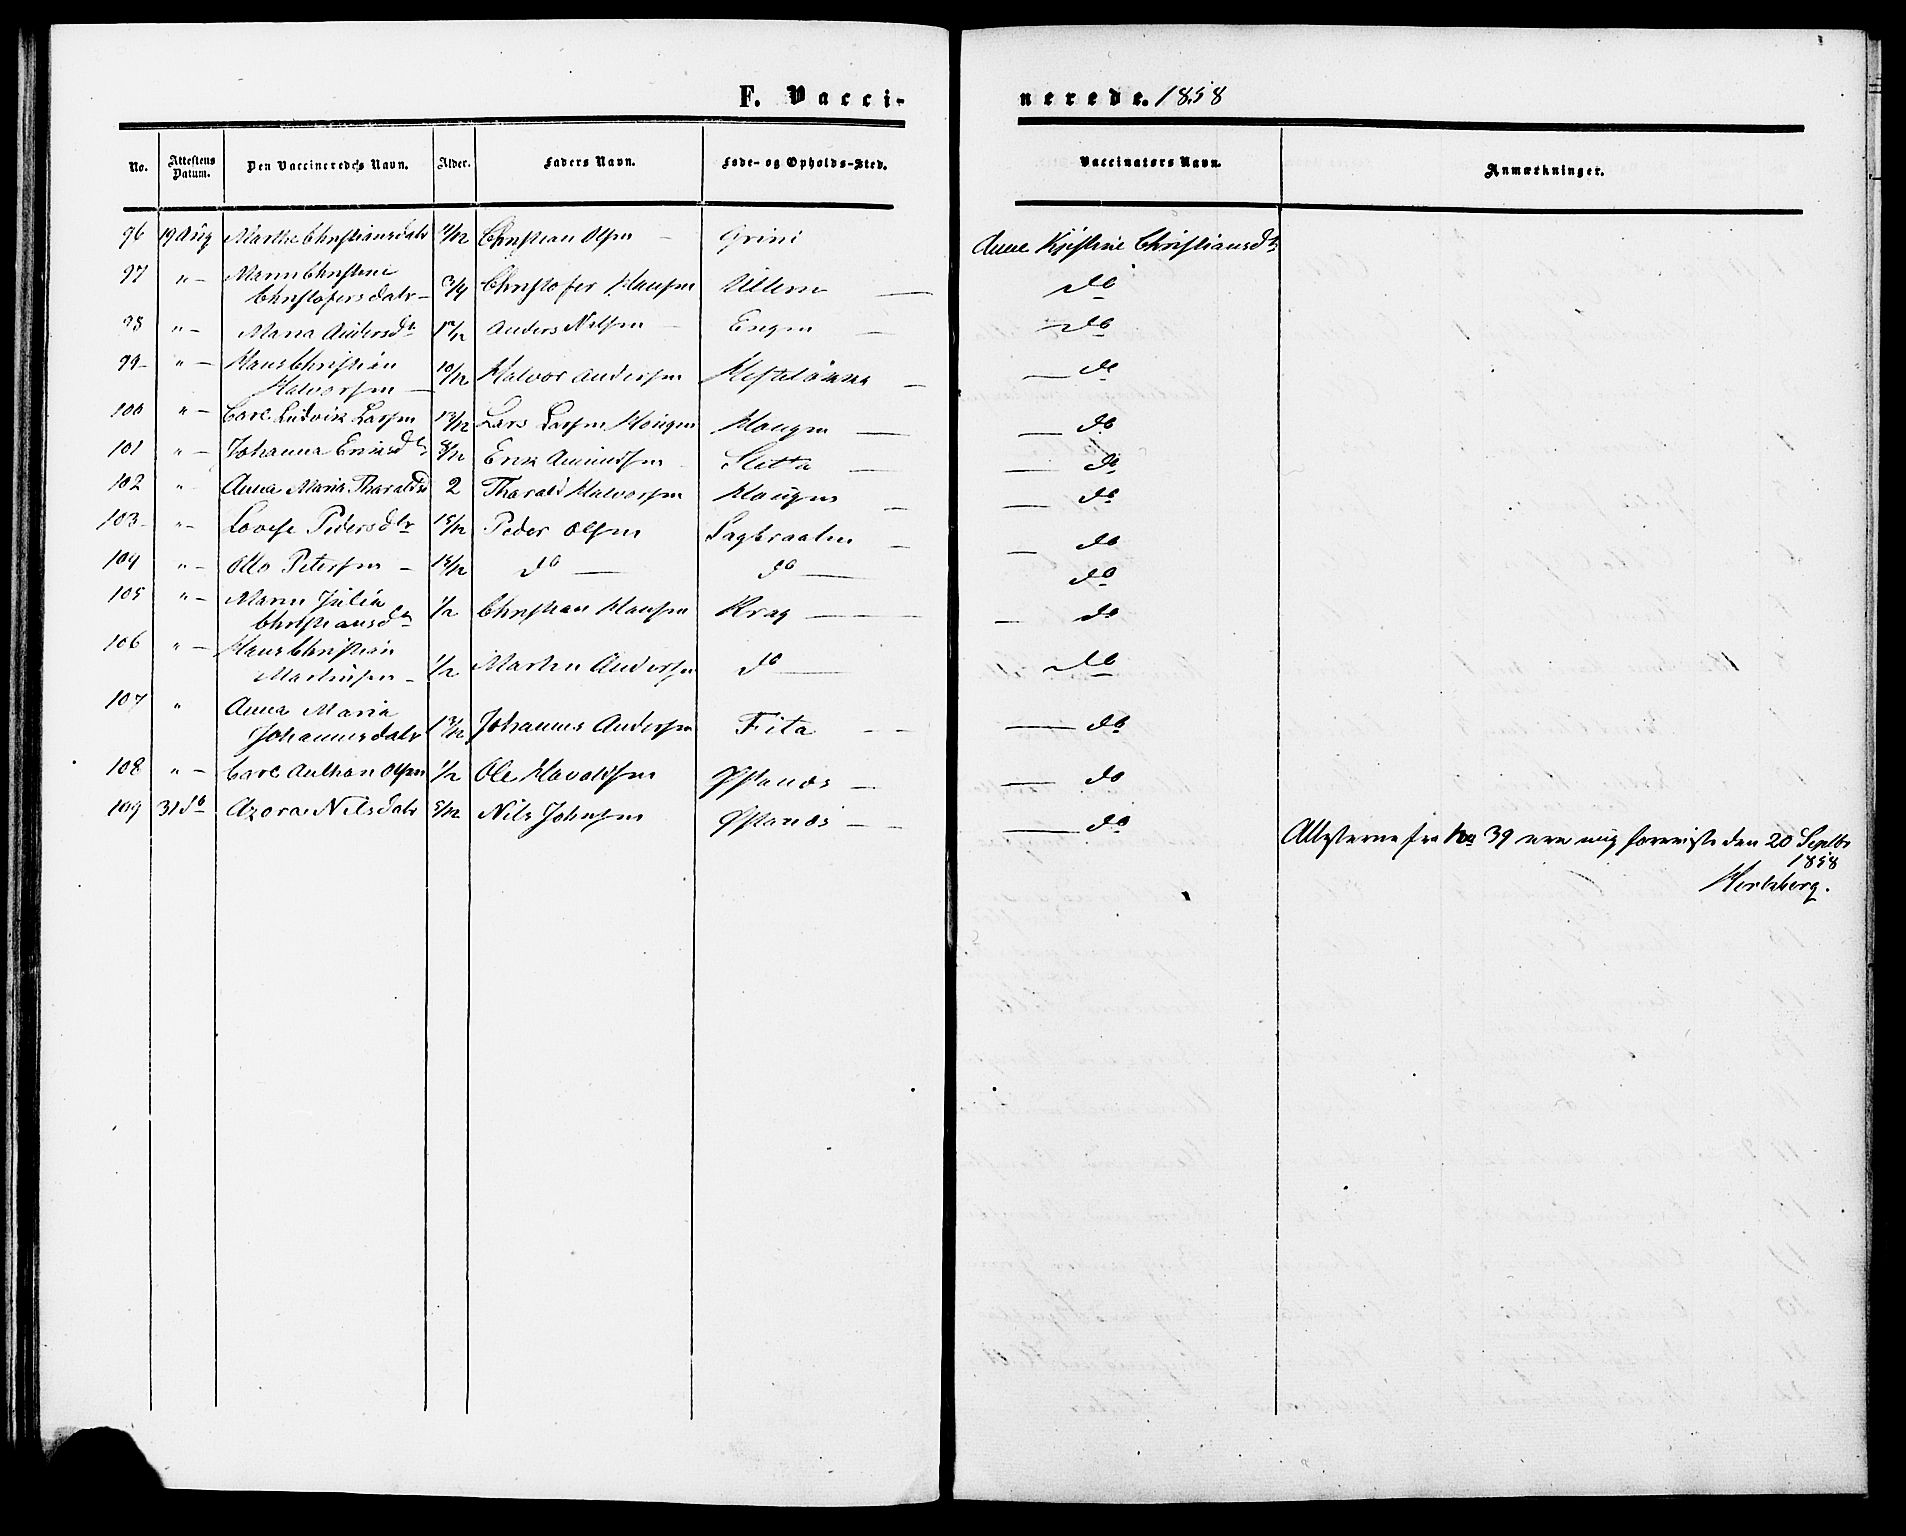 F. Vacci-
nerede. 1858
No.
Attestens Datum.
Den Vaccineredes Navn.
Alder.
Faders Navn.
Føde- og Opholds-Sted.
Vaccinatørs Navn.
Anmærkninger.
96 19 Aug Marthe Christiansdatr /12 Christian Olsen — Grini Anne Kristine Christiansdtr
97 " — Maren Christine
Christofersdatr — 3/4 Christofer Hansen Ullern — do
98 " — Maria Andersdtr /12 Anders Nilsen — Engen — do
99 — " — Hans Christian
Halvorsen — 10/12 Halvor Andersen — do
100 " — Carl Ludvik Larsen 13/12 Lars Larsen Haugen Haugen — do
101 " — Johanna Eriksdtr 8/12 Erik Amundsen Sletta — do
102 " Anna Maria Tharaldsd 2 Tharald Halvorsen Haugen — do
103 — " — Lovise Pedersdtr 15/12 Peder Olsen Sagbraaten — do
104 " — Otto Petersen — 15/12 do — do — do
105 " — Maren Julia
Christiansdtr 1/2 Christian Hansen Krag — do
106 " — Hans Christian
Martinsen — 1/2 Martin Andersen do — do
107 " Anna Maria
Johannesdatr 13/12 Johannes Andersen Fita — do
108 " — Carl Anthon Olsen 1/2 Ole Havoldsen Opstands — do
109 31 do Azora Nilsdatr 5/12 Nils Johnsen Opstands — do
Attesterne fra No 39 ere mig foreviste den 20 Septbr
1858
Hertzberg.